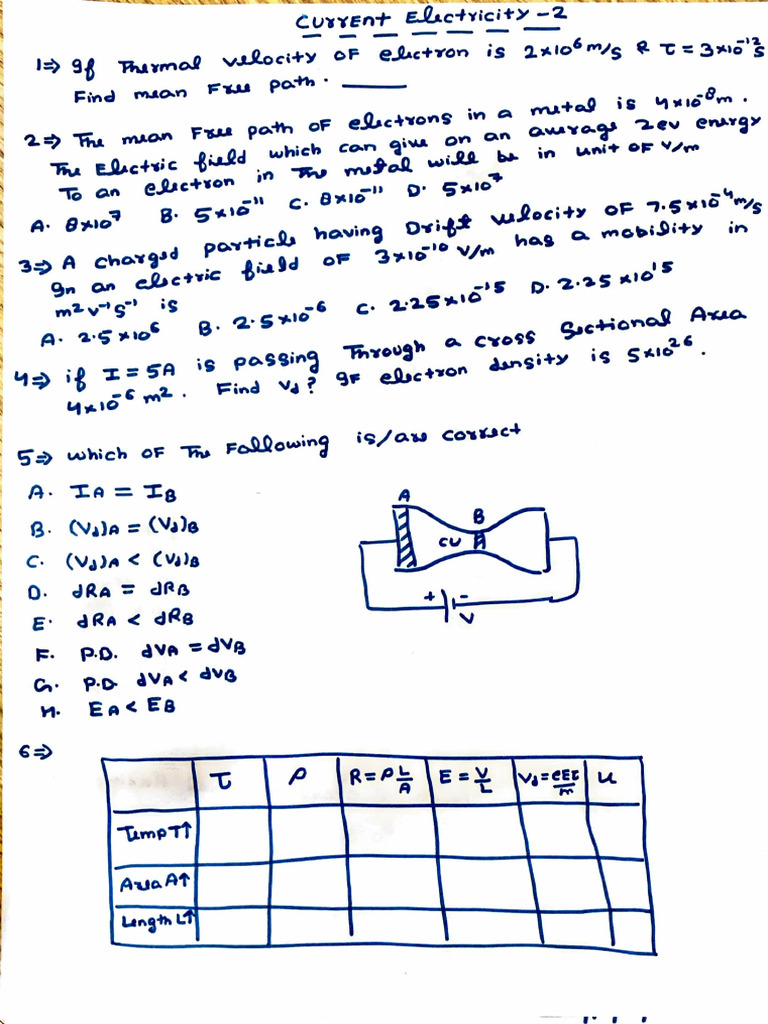 Current Electricity-2
1⇒ If Thermal velocity of electron is 2×10⁶ m/s & τ = 3×10⁻¹² s
Find mean Free path. ______
2⇒ The mean Free path of electrons in a metal is 4×10⁻⁸ m.
The Electric field which can give on an average 2ev energy
To an electron in the metal will be in unit of V/m
A. 8×10⁷ B. 5×10⁻¹¹ C. 8×10⁻¹¹ D. 5×10⁷
3⇒ A charged particle having Drift velocity of 7.5×10⁻⁴ m/s
In an electric field of 3×10⁻¹⁰ V/m has a mobility in
m² v⁻¹ s⁻¹ is
A. 2.5×10⁶ B. 2.5×10⁻⁶ C. 2.25×10⁻¹⁵ D. 2.25×10¹⁵
4⇒ if I = 5A is passing Through a cross Sectional Area
4×10⁻⁶ m². Find Vd? If electron density is 5×10²⁶.
5⇒ which of The Following is/are correct
A. IA = IB
B. (Vd)A = (Vd)B
C. (Vd)A < (Vd)B
D. dRA = dRB
E. dRA < dRB
F. P.D. dVA = dVB
G. P.D. dVA < dVB
H. EA < EB
A
B
cu
+ -
V
6⇒
τ ρ R = ρ L/A E = V/L Vd = eEτ/m u
Temp T↑
Area A↑
Length L↑